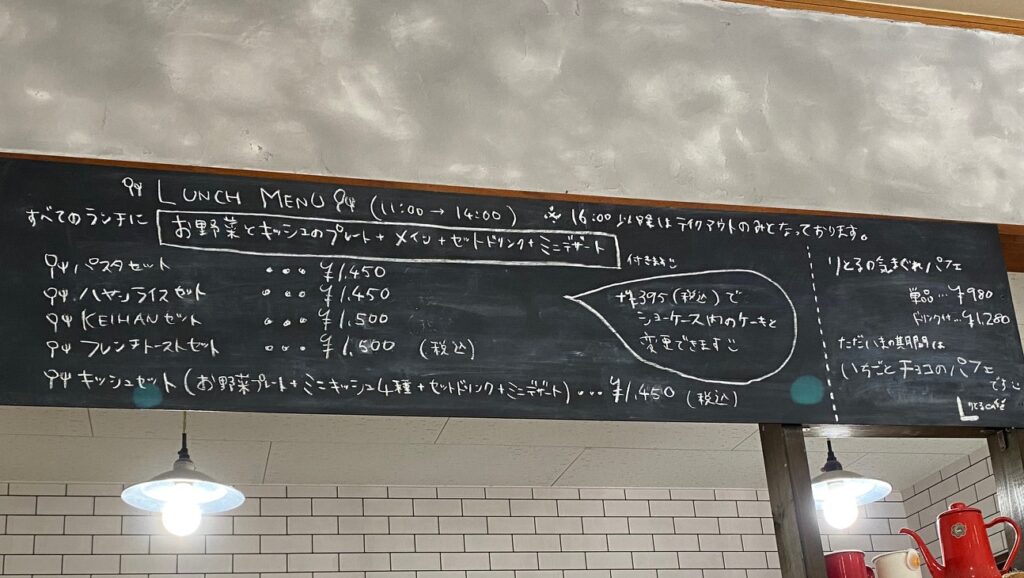 LUNCH MENU (11:00 → 14:00) ※ 16:00 以降はテイクアウトのみとなっております。
すべてのランチに お野菜とキッシュのプレート + メイン + セットドリンク + ミニデザート 付きます
パスタセット ・・・ ¥1,450
ハヤシライスセット ・・・ ¥1,450
KEIHANセット ・・・ ¥1,500
フレンチトーストセット ・・・ ¥1,500 (税込)
キッシュセット (お野菜プレート + ミニキッシュ4種 + セットドリンク + ミニデザート) ・・・ ¥1,450 (税込)
+¥395 (税込) で
ショーケース内のケーキと
変更できます
りとるの気まぐれパフェ
単品… ¥980
ドリンク付… ¥1,280
ただいまの期間は
いちごとチョコのパフェ
です